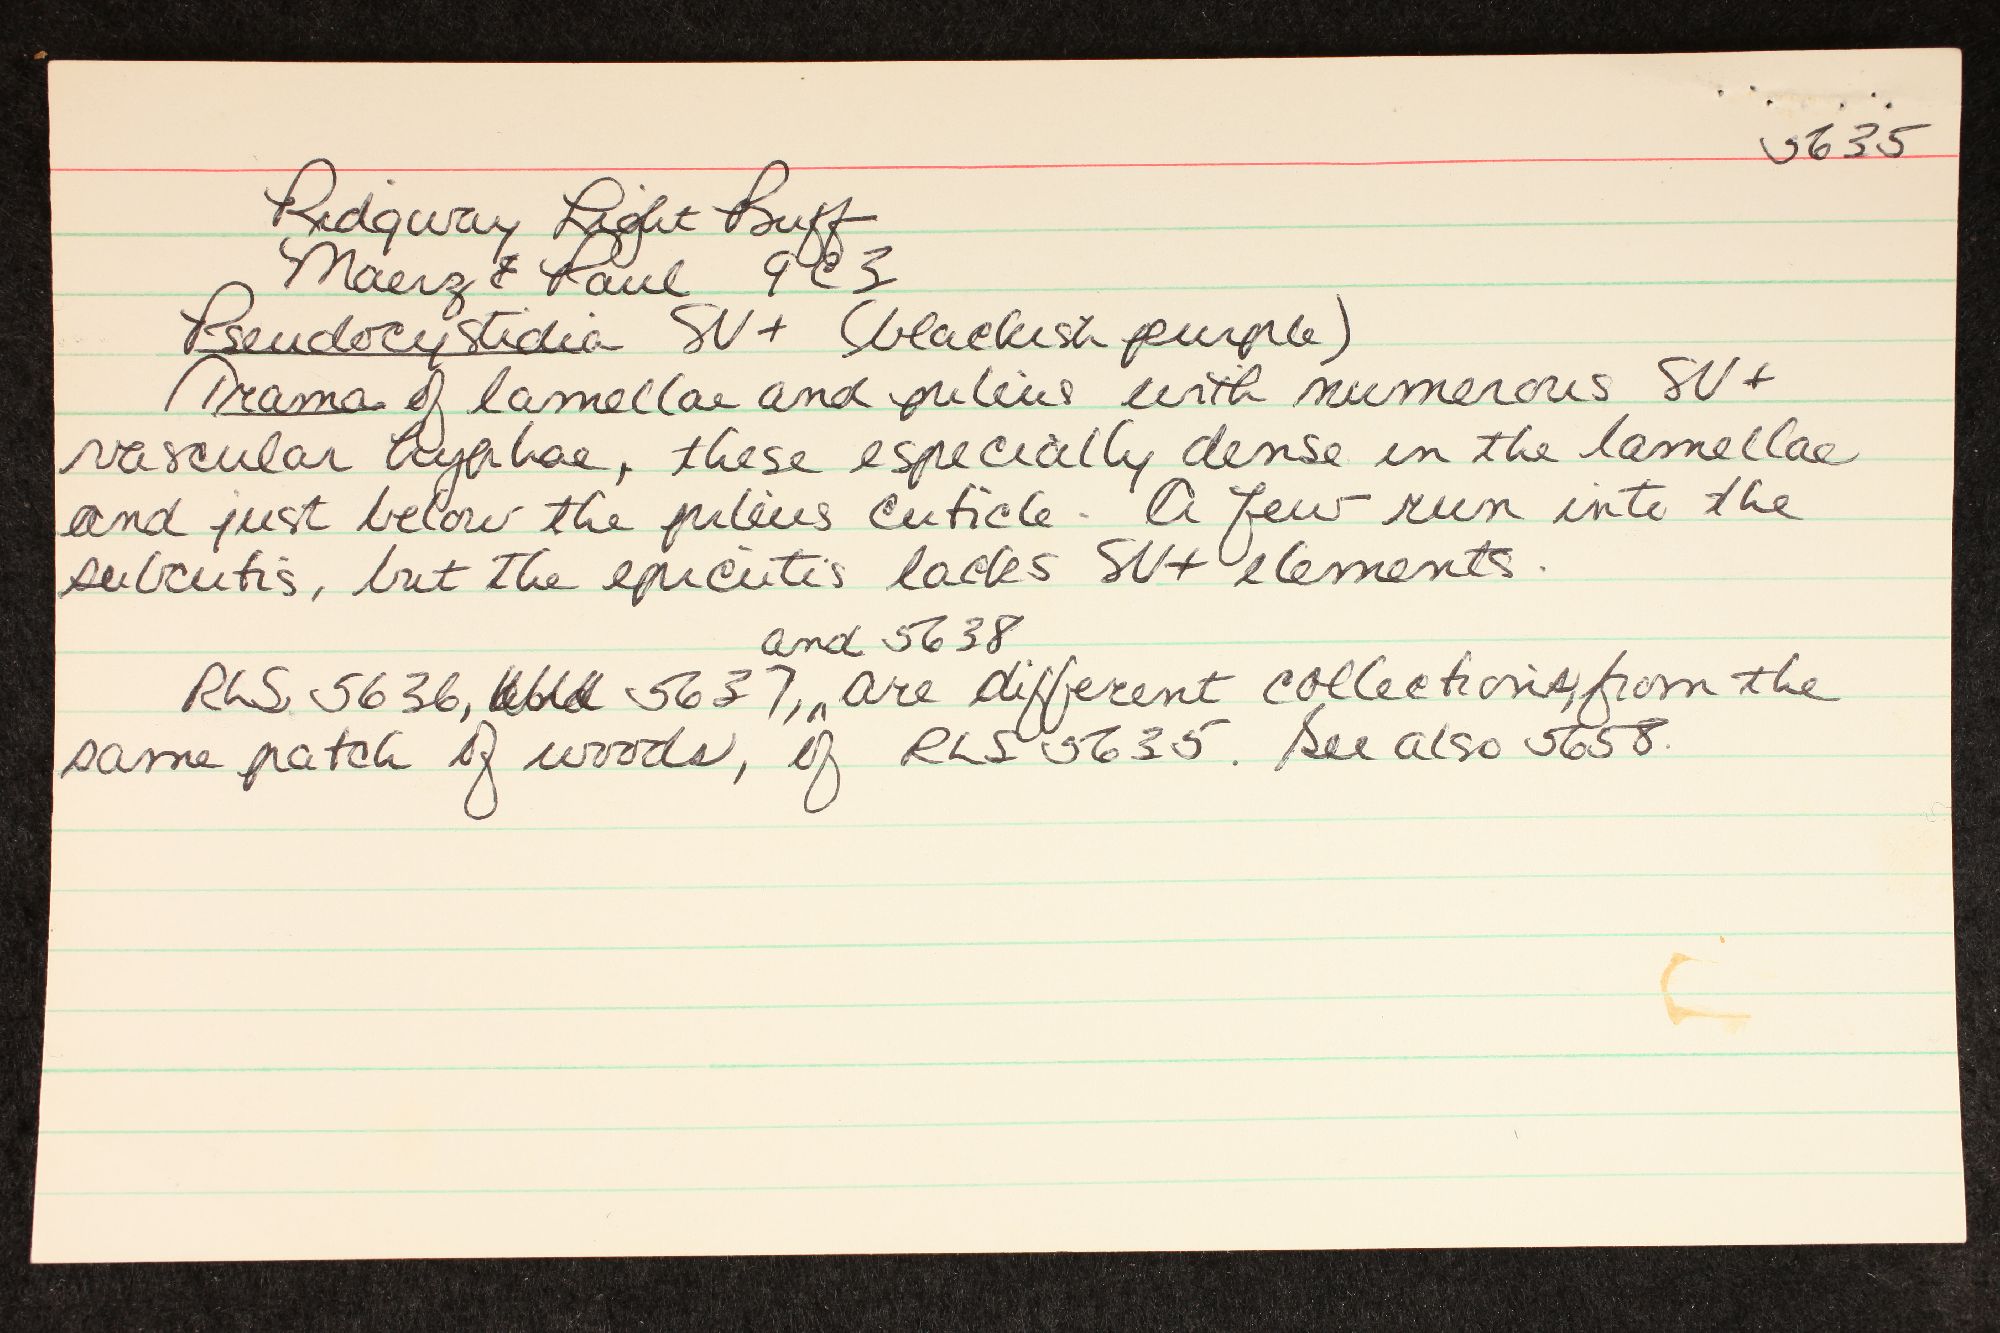 5635
Ridgway Light Buff
Maerz & Paul 9C3
Pseudocystidia SV+ (blackish purple)
Trama of lamellae and pileus with numerous SV+
vascular hyphae, these especially dense in the lamellae
and just below the pileus cuticle. A few run into the
subcutis, but the epicutis lacks SV+ elements.
and 5638
RLS 5636, 5637, are different collections, from the
same patch of woods, of RLS 5635. See also 5658.